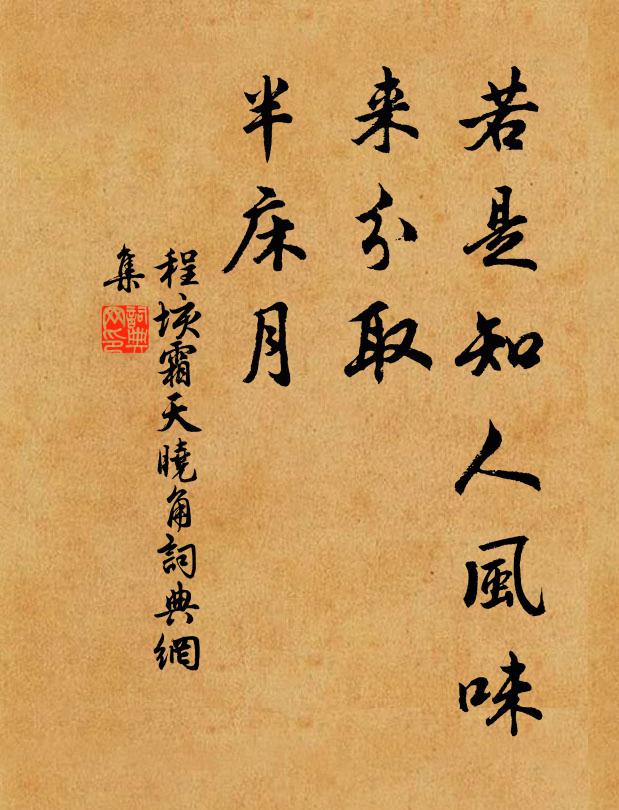 若是知人風味
来分取
半床月
程垓霜天曉角詞典網
集
詞典
网印